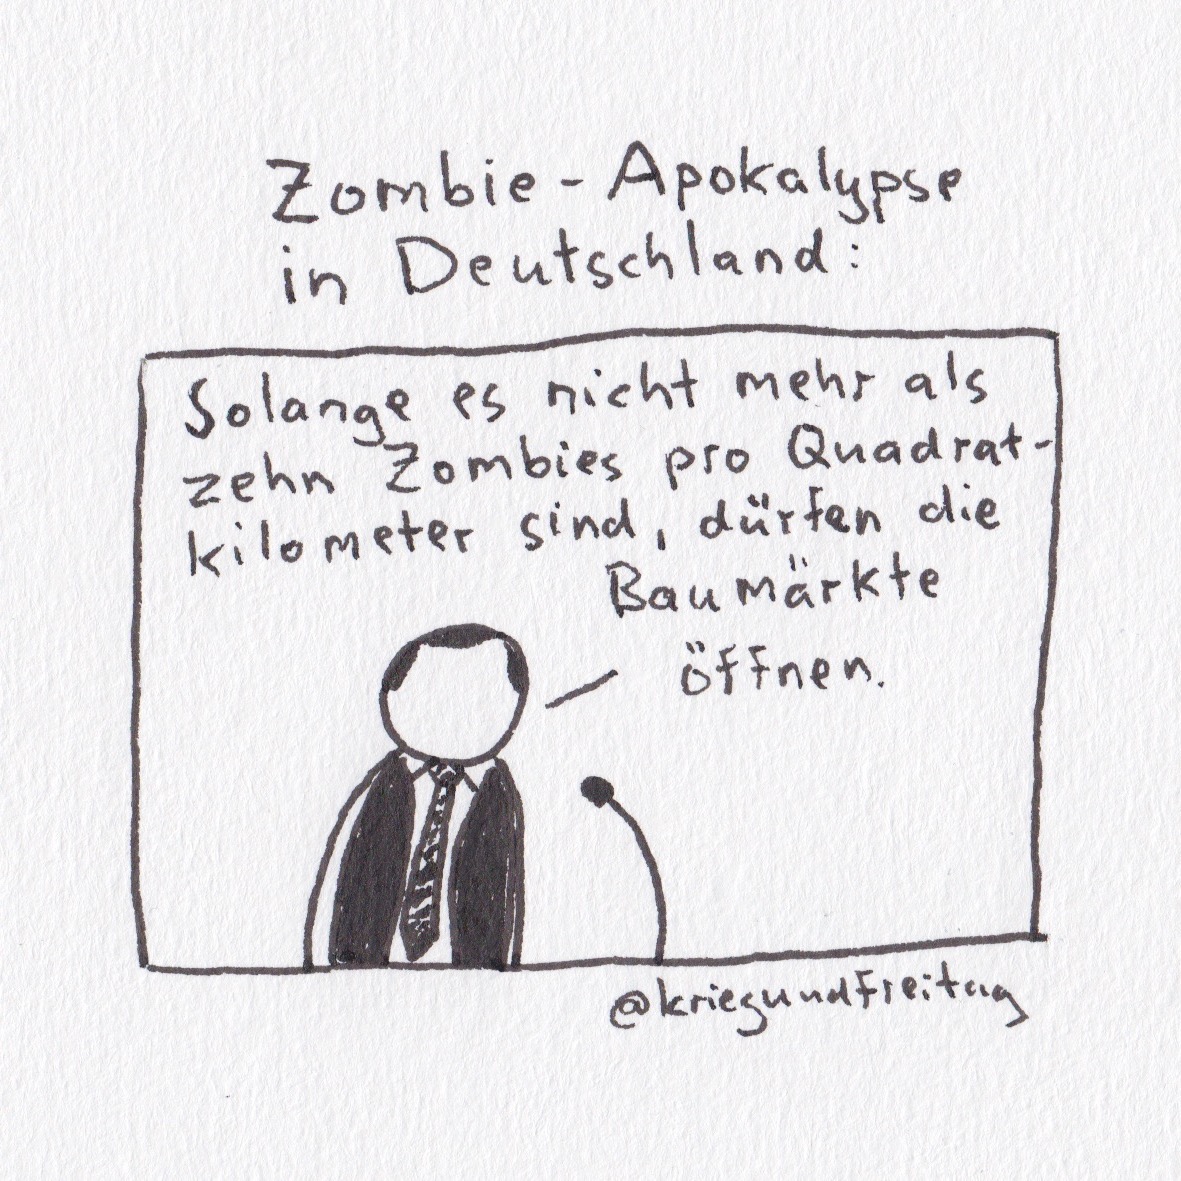 Zombie-Apokalypse
in Deutschland:
Solange es nicht mehr als
zehn Zombies pro Quadrat-
kilometer sind, dürfen die
Baumärkte
öffnen.
@kriegundfreitag